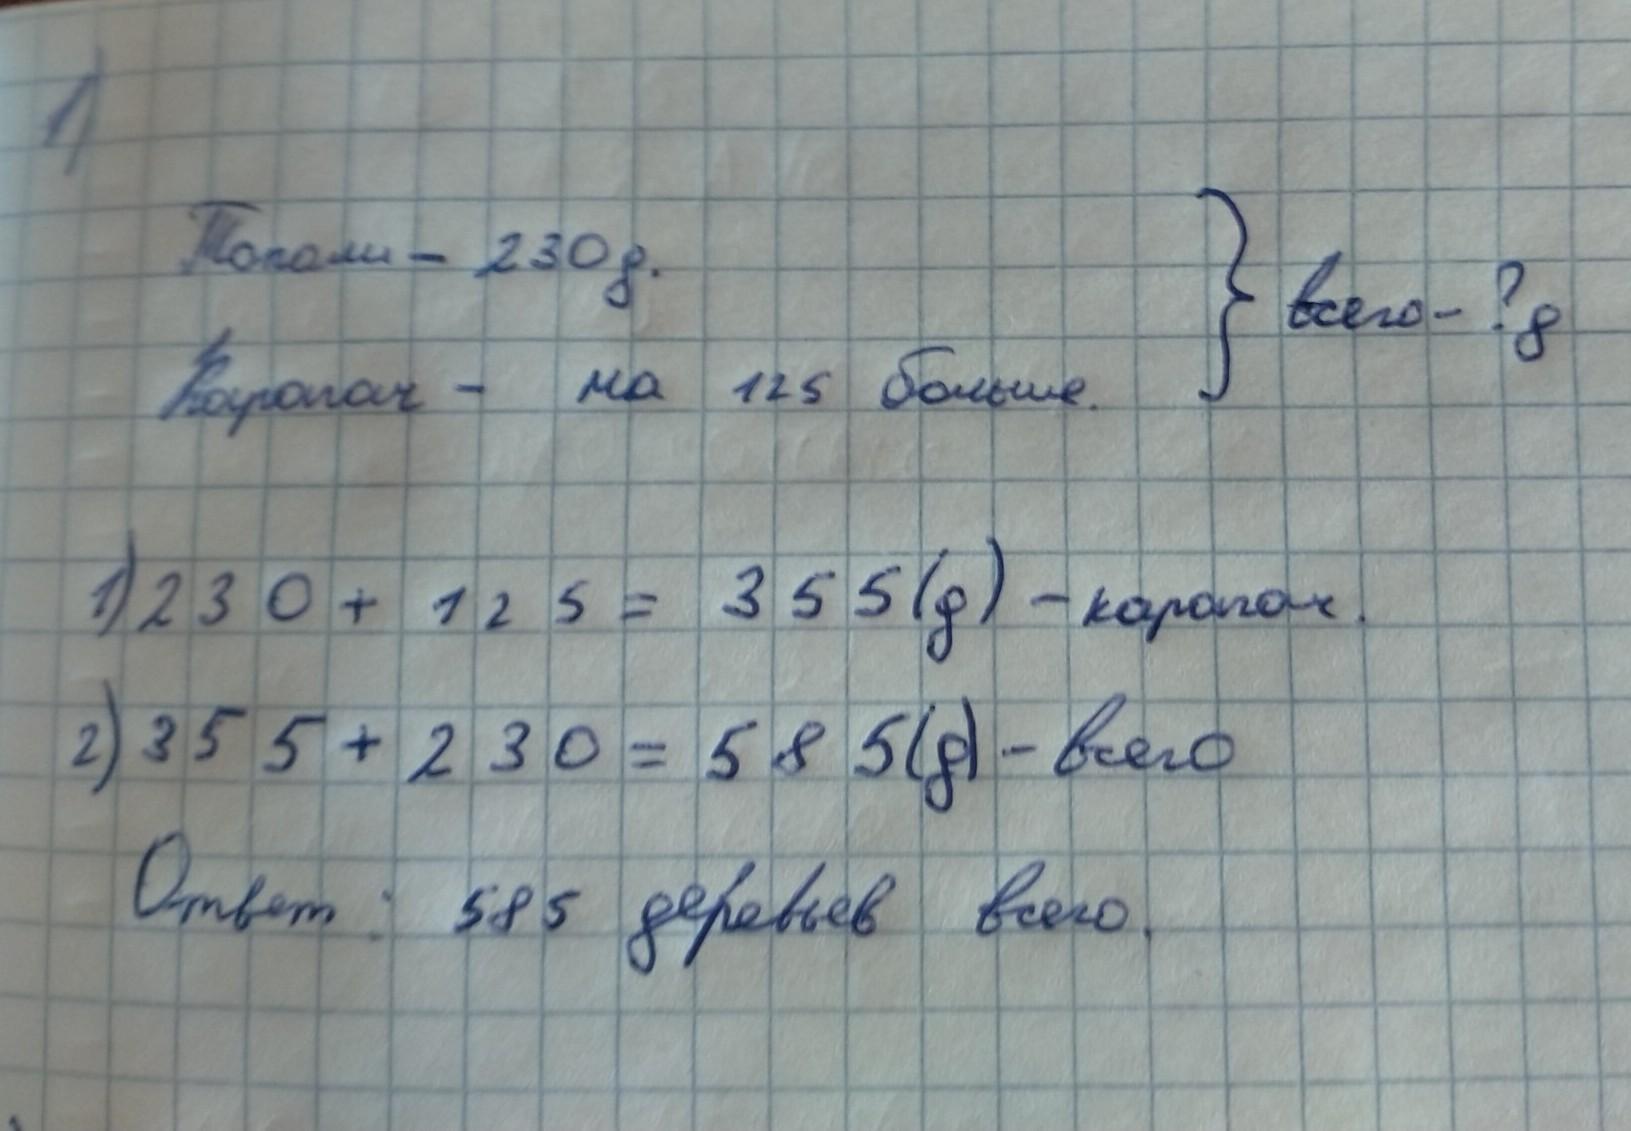 1)
Тополи - 230 д.
Карагач - на 125 больше.
} всего - ? д
1) 230 + 125 = 355 (д) - карагач.
2) 355 + 230 = 585 (д) - всего
Ответ: 585 деревьев всего.